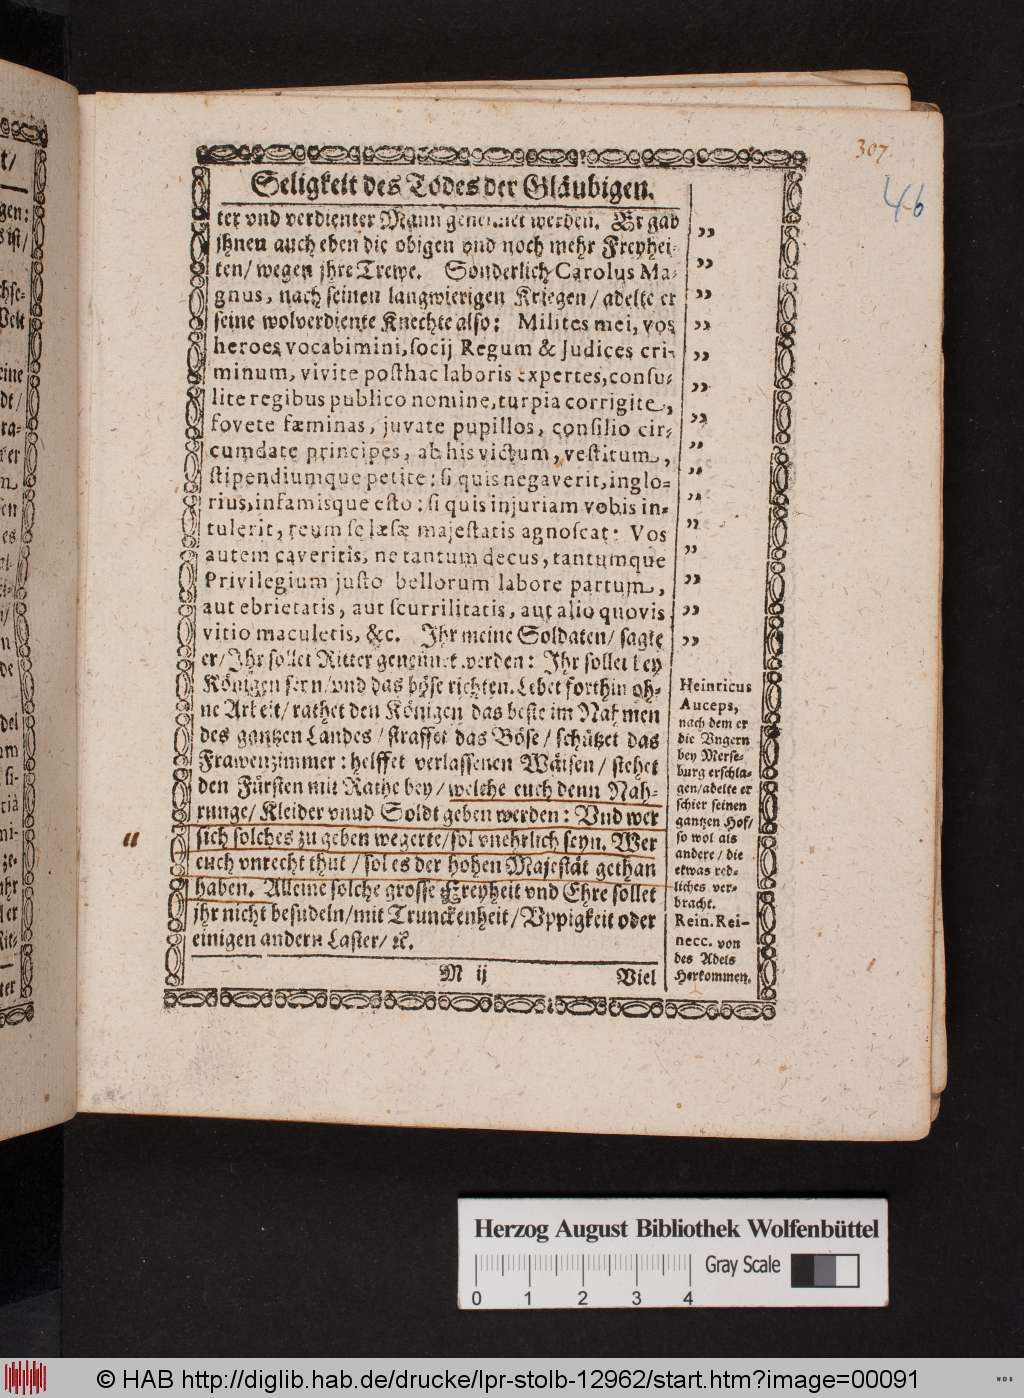 307
46
Seligkeit des Todes der Gläubigen.
ter vnd verdienter Mann genennet werden. Er gab
jhnen auch eben die obigen vnd noch mehr Freyhei-
ten/ wegen jhre Trewe. Sonderlich Carolus Ma-
gnus, nach seinen langwierigen Kriegen/ adelte er
seine wolverdiente Knechte also: Milites mei, vos
heroes vocabimini, socij Regum & Judices cri-
minum, vivite posthac laboris expertes, consu-
lite regibus publico nomine, turpia corrigite,
fovete fæminas, juvate pupillos, consilio cir-
cumdate principes, ab his victum, vestitum,
stipendiumque petite: si quis negaverit, inglo-
rius, infamisque esto: si quis injuriam vobis in-
tulerit, reum se læsæ majestatis agnoscat: Vos
autem caveritis, ne tantum decus, tantumque
Privilegium justo bellorum labore partum,
aut ebrietatis, aut scurrilitatis, aut alio quovis
vitio maculetis, &c. Jhr meine Soldaten/ sagte
er/ Jhr sollet Ritter genennet werden: Jhr sollet bey
Königen seyn/ vnd das böse richten. Lebet forthin oh-
ne Arbeit/ rathet den Königen das beste im Nahmen
des gantzen Landes/ straffet das Böse/ schützet das
Frawenzimmer: helffet verlassenen Wäisen/ stehet
den Fürsten mit Rathe bey/ welche euch denn Nah-
runge/ Kleider vnud Soldt geben werden: Vnd wer
sich solches zu geben wegerte/ sol vnehrlich seyn. Wer
euch vnrecht thut/ sol es der hohen Majestät gethan
haben. Alleine solche grosse Freyheit vnd Ehre sollet
jhr nicht besudeln/ mit Trunckenheit/ Vppigkeit oder
einigen andern Laster/ ꝛc.
M ij
Viel
Heinricus
Auceps,
nach dem er
die Vngern
bey Merse-
burg erschla-
gen/ adelte er
schier seinen
gantzen Hof/
so wol als
andere/ die
etwas red-
liches ver-
bracht.
Rein. Rei-
necc. von
des Adels
Herkommen.
Herzog August Bibliothek Wolfenbüttel
Gray Scale
0 1 2 3 4
© HAB http://diglib.hab.de/drucke/lpr-stolb-12962/start.htm?image=00091